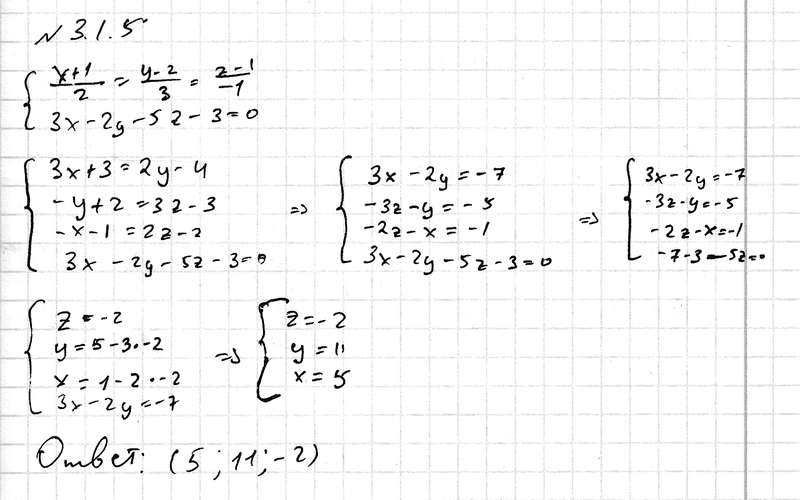 № 3.1.5
{ (x+1)/2 = (y-2)/3 = (z-1)/-1
3x-2y-5z-3=0
{ 3x+3=2y-4
-y+2=3z-3
-x-1=2z-2
3x-2y-5z-3=0
=> { 3x-2y=-7
-3z-y=-5
-2z-x=-1
3x-2y-5z-3=0
=> { 3x-2y=-7
-3z-y=-5
-2z-x=-1
-7-3-5z=0
{ z=-2
y=5-3·-2
x=1-2·-2
3x-2y=-7
=> { z=-2
y=11
x=5
Ответ: (5;11;-2)